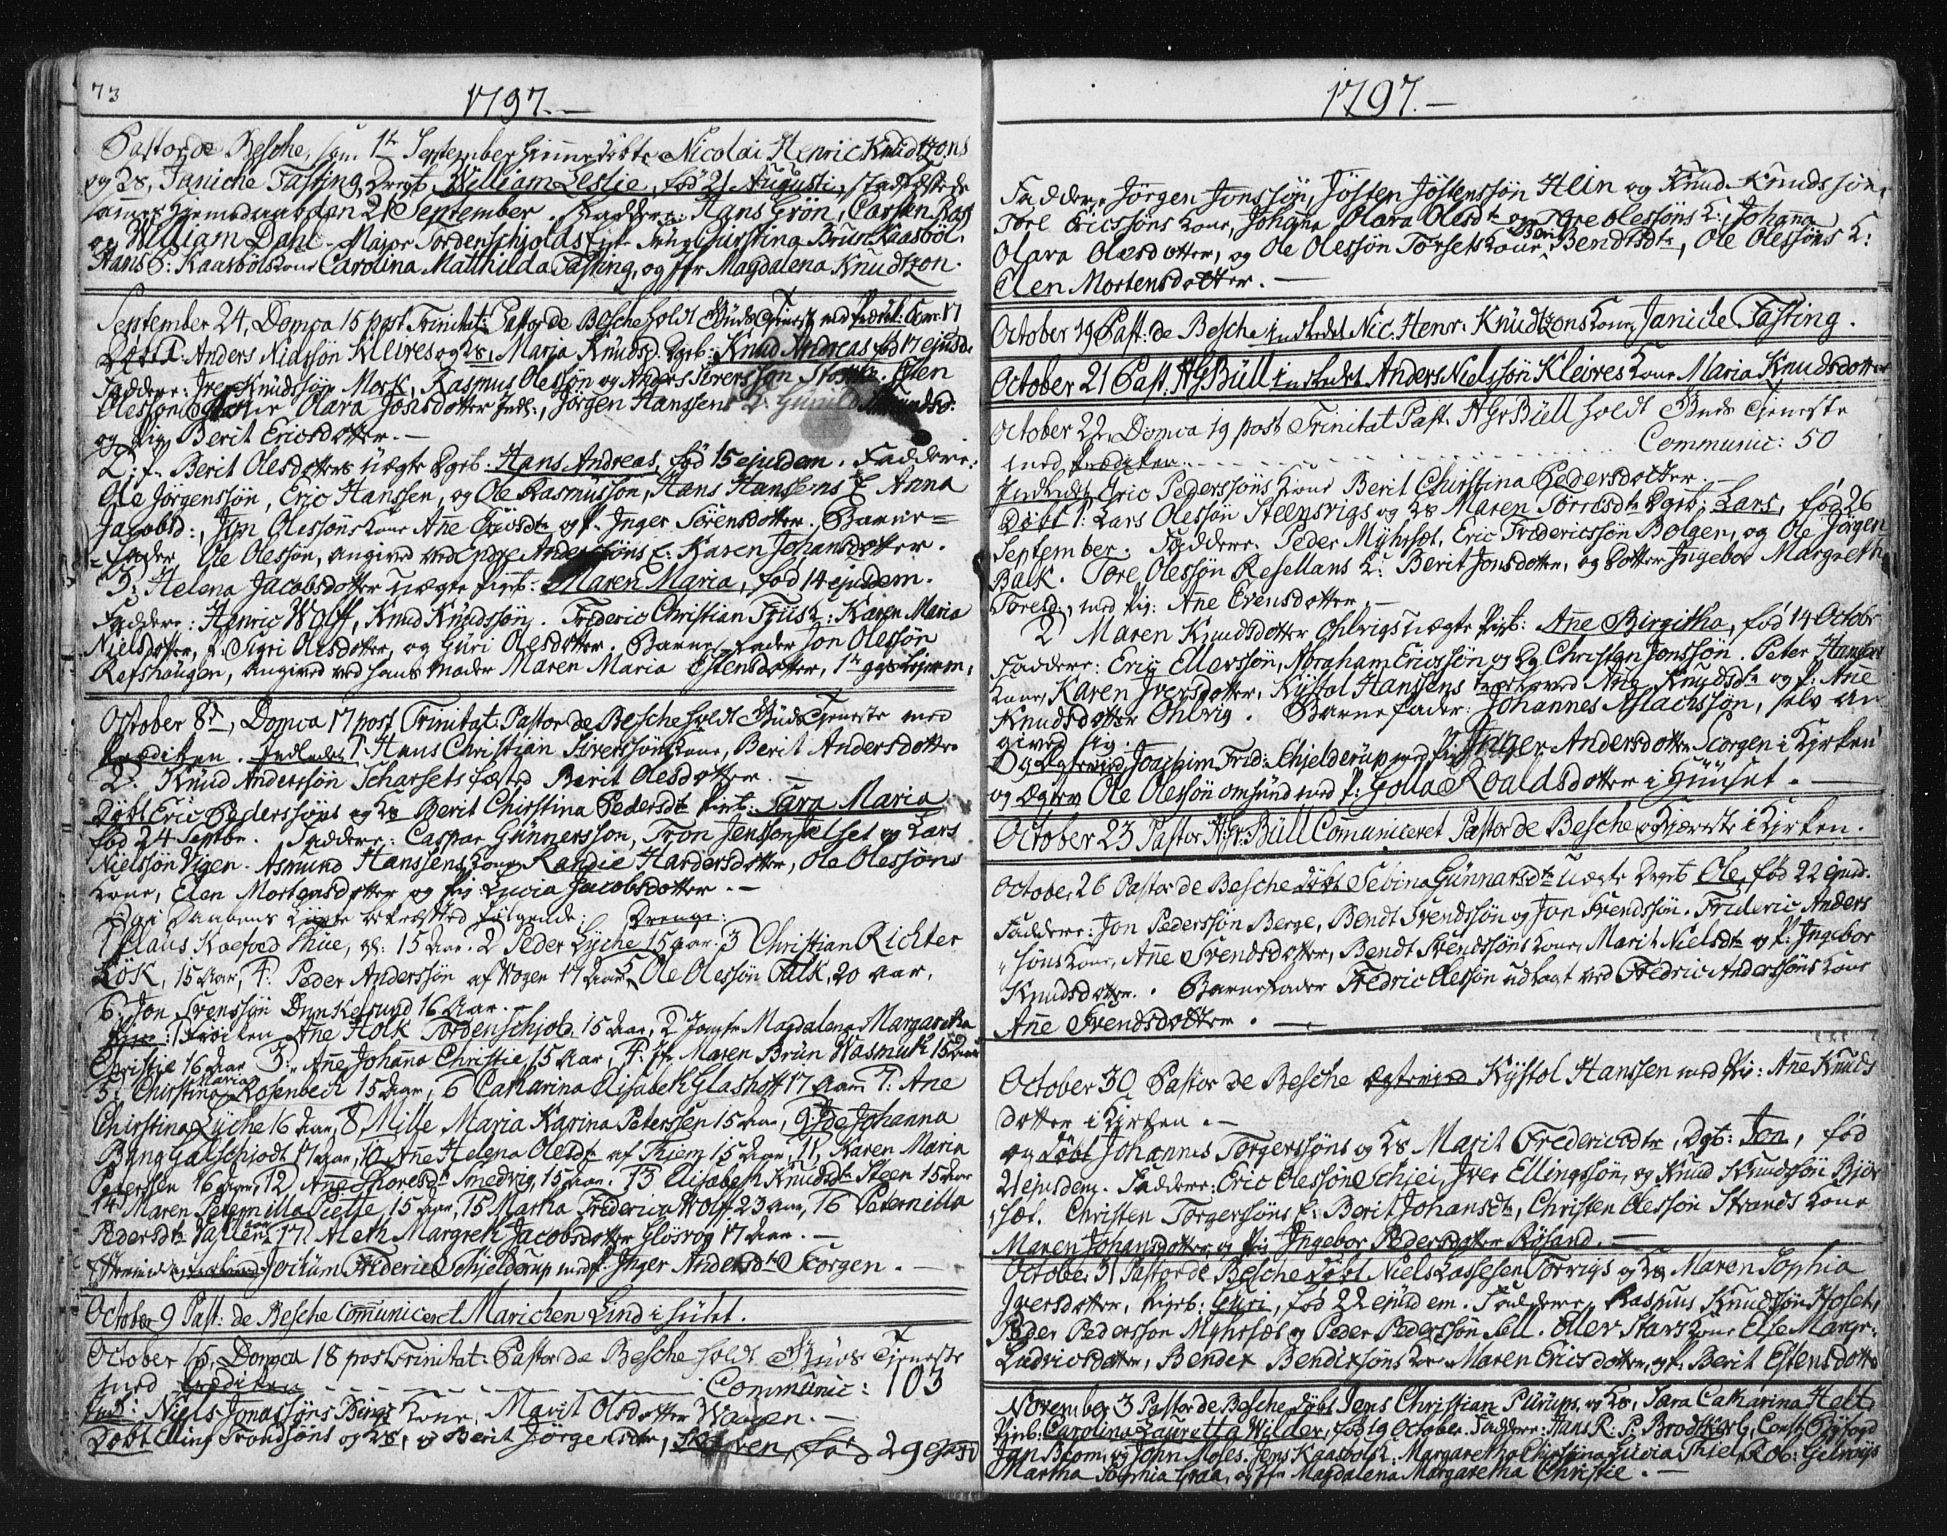 73
1797.-
Pastor de Besche, som 1te September hiemmedøbte Nicolai Henric Knudtzons
og Ks, Janiche Fasting Drgb. William Leslie, fød 21 Augusti, stadfæstede
samme hjemedaab den 21 September. Faddere: Hans Grön, Carsten Bass
og William Dahl. Major Tordenschjolds Frue Chirstina Brun Kaasböl.
Hans C: Kaasböls kone Carolina Mathilda Fasting, og Jfr Magdalena Knudtzon.
September 24, Domca 15 post Trinitat: Pastor de Besche holdt Guds Tjeneste med Præd. Com: 17
Döbt 1. Anders Nielssön Kleives og Ks, Maria Knudsd. Dgeb: Knud Andreas fød 17 ejusd.
Faddere: Iver Knudssön Mork, Rasmus Olessön og Anders Siverssön Elen
Olessön Clara Jonsdotter Indl:, Jørgen Hanssens K: Gunild Amundsd:
og Pig Berit Ericsdotter.-
2: P. Berit Olesdotters Uægte Dgeb: Hans Andreas, fød 15 ejusdem. Faddere:
Ole Jörgenssön, Eric Hanssen, og Ole Rasmusson, Hans Hanssens K. Anna
Jacobsd:, Jon Olessöns kone Ane Ericsdtr og P. Inger Sörensdotter. Barne=
=Fader Ole Olessön, angived ved Endre Anderssöns K. Karen Johansdotter.
3: Helena Jacobsdotter Uægte Pigeb: Maren Maria, fød 14 ejusdem.
Faddere: Henric Wolff, Knud Knudssön. Frederic Christian Frus K: Karen Maria
Nielsdotter, P. Sigri Olesdotter, og Guri Olesdotter. Barne-Fader Jon Olessön
Refshaugen, angived ved hans Moder Maren Maria Estensdotter, 1te ggs Lejerm.
October 8de, Domca 17 post Trinitat: Pastor de Besche holdt Guds Tjeneste med
Prædiken. Indledet 1 Hans Christian Siverssöns kone, Berit Andersdotter
2: Knud Anderssön Scharsets fæsted Berit Olesdotter.-
Döbt Eric Pederssöns og Ks Berit Chirstina Pedersdtr Pigeb: Sara Maria
fød 24 Septbr. Faddere: Caspar Günnerssön, Tron Jenssön Jelset og Lars
Nielssön Vigen. Asmund Hanssens kone Randie Hardersdotter, Ole Olessöns
kone, Elen Mortensdotter og Pig: Lucia Jacobsdotter.-
I Daabens Løfte bekræfted følgende: Drenge:
1 Claus Koefoed Thue, gl: 15 Aar. 2 Peder Lyche 15 Aar. 3 Christian Richter
Lök, 15 Aar, 4: Peder Anderssön af Vogen 17 Aar 5 Ole Olessön Falk, 20 Aar,
6 Jon Svenssön Dunkersund 16 Aar.
Piger: 1 Frøiken Ane Holk Tordenschjold, 15 Aar, 2 Jomfr Magdalena Margaretha
Christie 16 Aar 3: Ane Johanna Christie 15 Aar, 4: Jfr Maren Brün Wasmuth 15 Aar
5: Chirstina Maria Rosenbech 15 Aar, 6 Catharina Elisabeth Glashoff 17 Aar 7: Ane
Chirstina Lyche 16 Aar, 8 Mille Maria Karina Peterssen 15 Aar, 9 Ide Johanna
Bing Galschjödt 17 Aar, 10 Ane Helena Olesdtr af Thiem 15 Aar, 11, Karen Maria
Peterssen 16 Aar, 12 Ane Thoresdtr Smedvig, 15 Aar. 13 Elisabeth Knudsdtr Steen 15 Aar
14 Maren Peternilla Vielle, 15 Aar, 15 Martha Frederica Wolff 23 Aar, 16 Peternilla
Pedersdtr Vallen 17. Aleth Margreth Jacobsdotter Glösvog 17 Aar.-
Joitum Frederic Schjelderup med P: Inger Andersdtr Scorgen.-
October 9 Past: de Besche Communiceret Marichen Lind i huset.
October 15, Domca 18 post Trinitat: Pastor de Besche holdt Guds Tjeneste
med Prædiken - - - Communic: 103
Indl: Niels Jonassöns Bings kone, Marit Olsdotter Waagen.-
Döbt Elling Trondsöns og Ks, Berit Jörgensdtr, fød 29 ejusd
1797.-
Faddere Jörgen Jonssön, Jösten Jöstenssön Hein og Knud Knudssön,
Tore Ericssöns kone, Johana Olara Olesdtr og Tore Olessöns K:, Johana
Olara Olesdotter, og Ole Olessön Torsets kone Berit Bendtsdtr, Ole Olessöns K:
Elen Mortensdotter.-
October 19 Past: de Besche indledet Nic: Henr: Knüdtzons kone Janiche Fasting.
October 21 Past. HGBüll indledet Anders Nielssön Kleives kone Maria Knudsdotter
October 22, Domca 19 post Trinitat Past. HGrBüll holdt Guds Tjeneste
med Prædiken. - - - Communic: 50
Indledet Eric Pederssöns kone Berit Chirstina Pedersdotter.-
Döbt 1: Lars Olessön Steensvigs og Ks Maren Torresdtr Dgeb. Lars, fød 26
September. Faddere Peder Myhrsæt, Eric Fredericssön Bolgen, og Ole Jörgen
Balk. Tore Olessön Resellans K: Berit Jonsdotter, og Dotter Ingebor Margreth
Toresd:, med Pig: Ane Evensdotter.-
2 Maren Knudsdotter Ohlvigs Uægte Pigb: Ane Birgitha, fød 14 October
Faddere: Eric Ellerssön, Abraham Ericssön og Dg Christen Jonssön. Peter Hansens
kone, Karen Iversdotter, Kystol Hanssens trolovede Ane Knudsdtr og P: Ane
Knudsdotter Ohlvig. Barnefader: Johannes Aslachssön, selv an
gived sig.
Og Ægteviet Joachim Frid: Chjelderup med Pig Inger Andersdotter Scorgen i Kjrken
og Ægtev Ole Olessön omsund med P: Golla Roaldsdotter i Huuset.-
October 23 Pastor HGr: Büll Comuniceret Pastor de Besche og Kjereste i Kjrken.
October 26 Pastor de Besche Döbt Sebina Günnarsdtr Uægte Drgeb Ole, fød 22 ejusd.
Faddere: Jon Pederssön Berge, Bendt Svendssön og Jon Svendssön. Frideric Anders
=söns kone, Ane Svendsdotter, Bendt Svendssöns kone, Marit Nielsdtr og P: Ingebor
Knudsdotter. Barnefader Fredric Olessön udlagt ved Fredric Anderssöns kone
Ane Svendsdotter.-
October 30 Pastor de Besche Ægteviet Kystol Hanssen med Pig: Ane Knuds
dotter i Kjrken.-
og Döbt Johannes Torgerssöns og Ks Marit Fredericsdtr, Dgb: Jon, fød
21 ejusdem. Faddere: Eric Olessön Schjei, Iver Ellingssön, og Knud Knudssön Björ
sæt. Christen Torgerssöns K: Berit Johansdtr, Christen Olessön Strands kone
Maren Johansdotter og Pig Ingebor Pedersdotter Rösand.-
October 31 Pastor de Besche Döbt Niels Lassesen Torvigs og Ks Maren Sophia
Iversdotter, Pigeb: Guri, fød 22 ejusdem. Faddere, Rasmus Knudssön Hoset,
Peder Pederssön Myhrsæt og Peder Pederssön Sell. Eller Stavs kone Else Margr:
Ludvicsdotter, Bendix Bendixsöns kone Maren Ericsdotter, og P. Berit Estensdotter
November 3 Pastor de Besche Döbt Jens Christian Piürüps, og Ks, Sara Catharina Helt
Pigeb: Carolina Lauretta Wilder, fød 19 October. Faddere: Hans R: S: Brodtkirb, Const. Byfogd
Jan Blom, og John Moses. Jens Kaasböls K: Margaretha Chirstina Lucia Thiel, Rob: Gilroys
Martha Sophia Graa, og Jfr Magdalena Margaretha Christie.-